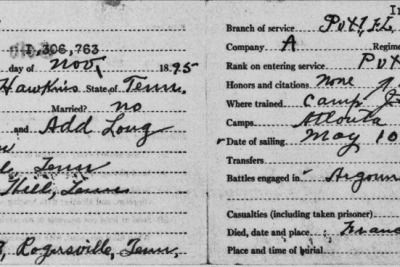 1,306,763
day of Nov, 1895
Hawkins State of Tenn.
Married? no
and Add Long
Tenn
Hill, Tenn
Rogersville, Tenn,
In
Branch of service
Company A Regime
Rank on entering service Pvt
Honors and citations None
Where trained Camp
Camps
Date of sailing May 10
Transfers
Battles engaged in Argonn
Casualties (including taken prisoner)
Died, date and place Franc
Place and time of burial